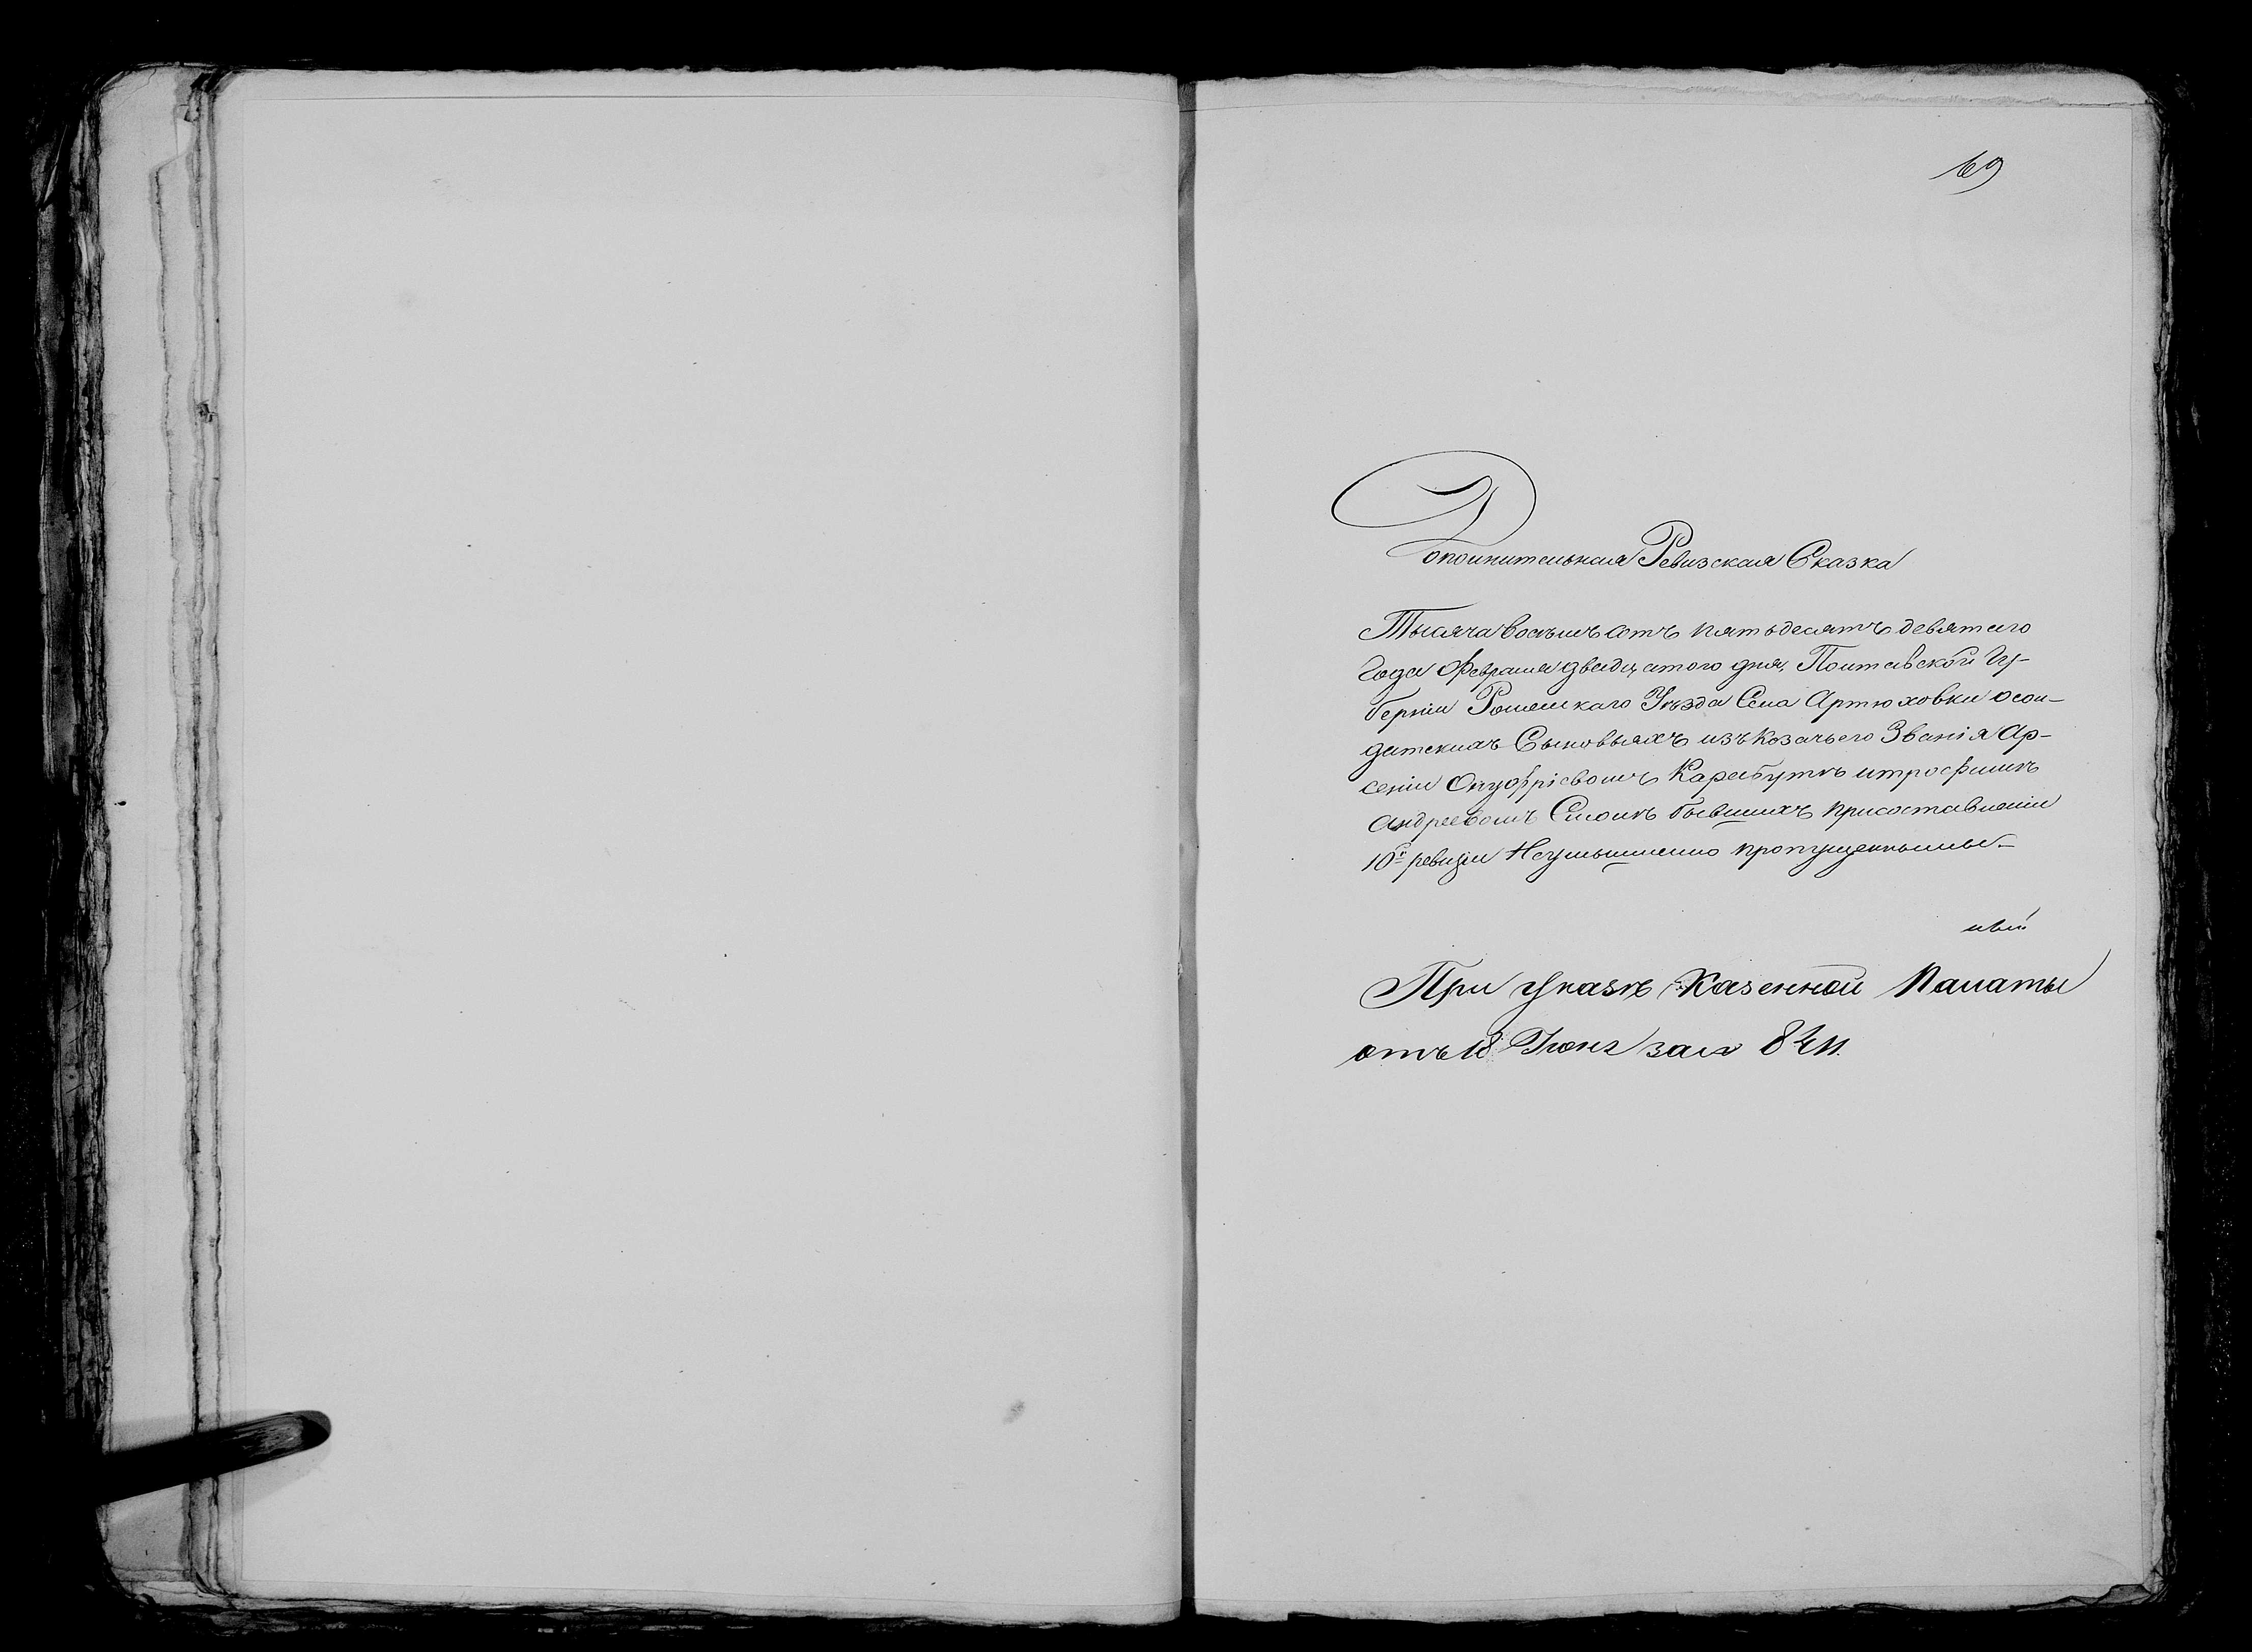 69
Дополнительная Ревизская Сказка
Тысяча восемъ сотъ пятьдесятъ девятаго
Года Февраля двадцатого дня, Полтавской Гу-
берніи Роменскаго Уѣзда Села Артюховки о сол-
датскихъ Сыновьяхъ изъ Козачьего Званія Ар-
сеніи Онуфріевомъ Карабутѣ и трофимѣ
Андреевомъ бывшихъ при составленіи
10й ревизіи Неумышленно пропущенными
При Указѣ Казенной Палаты
отъ 18 Июня за №